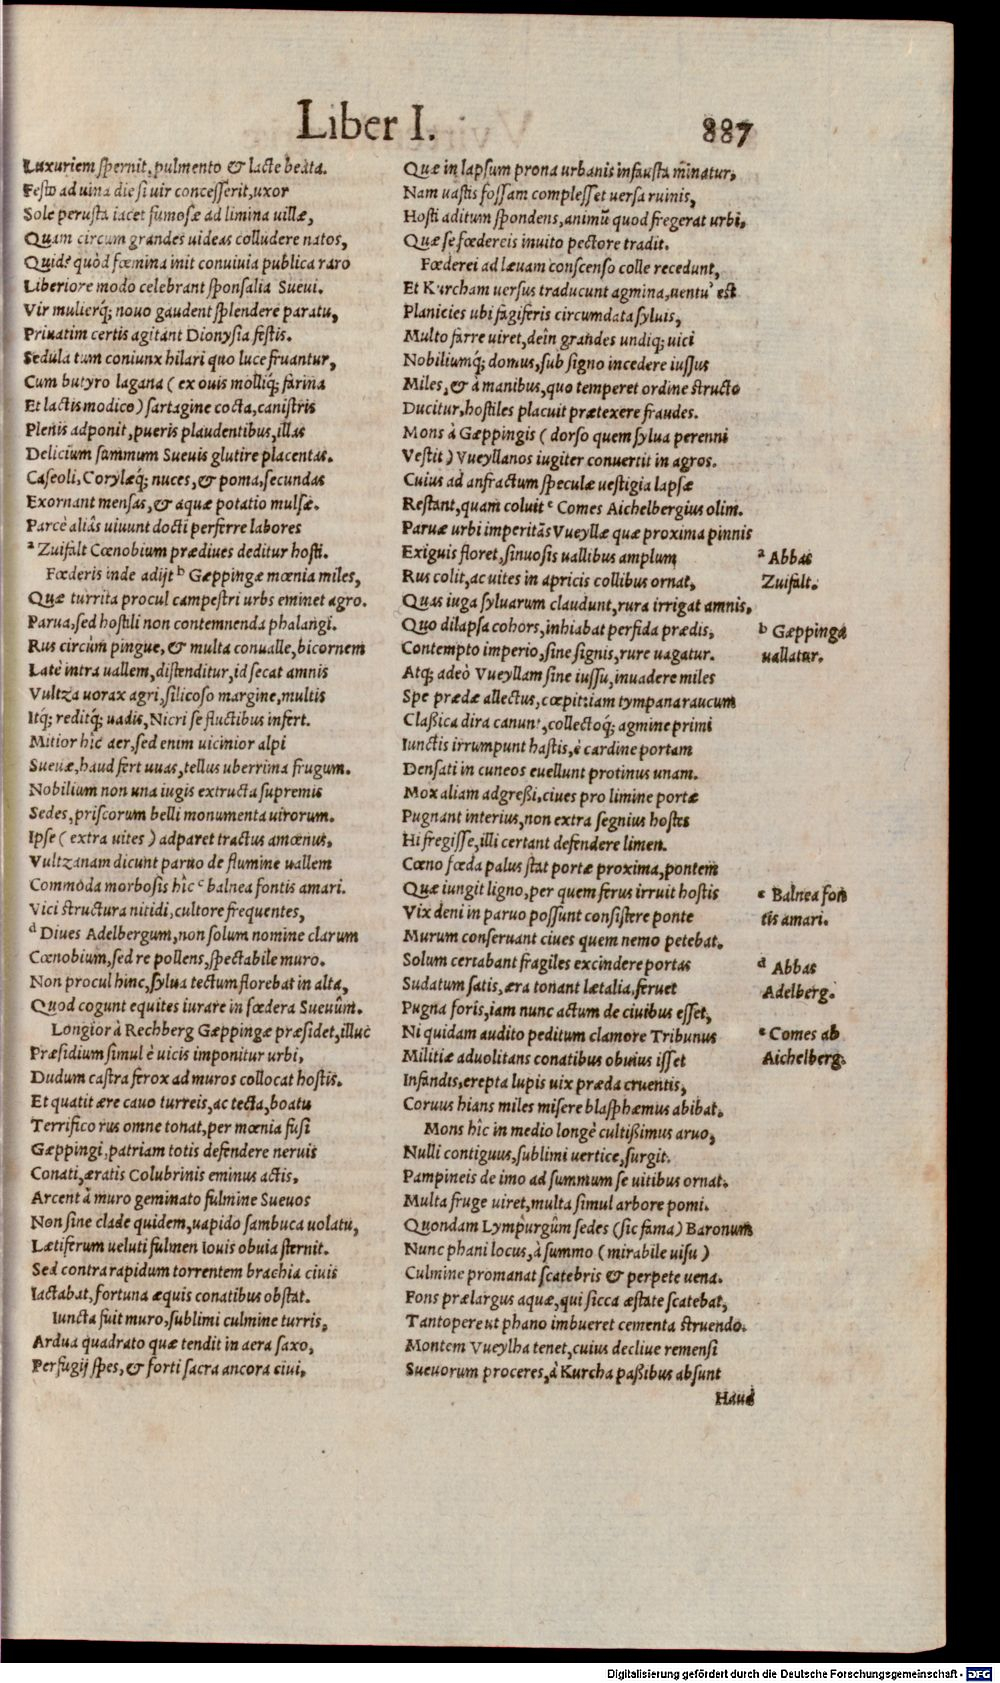 Liber I.
887
Luxuriem spernit, pulmento & lacte beata.
Festo ad uina die si uir concesserit, uxor
Sole perusta iacet fumosæ ad limina uillæ,
Quam circum grandes uideas colludere natos,
Quidẽ quòd fœmina init conuiuia publica raro
Liberiore modo celebrant sponsalia Sueui.
Vir mulierq́; nouo gaudent splendere paratu,
Priuatim certis agitant Dionysia festis.
Sedula tum coniunx hilari quo luce fruantur,
Cum butyro lagana ( ex ouis molliq́; farina
Et lactis modico ) sartagine cocta, canistris
Plenis adponit, pueris plaudentibus, illas
Delicium summum Sueuis glutire placentas.
Caseoli, Corylæq́; nuces, & poma, secundas
Exornant mensas, & aquæ potatio mulsæ.
Parcè aliâs uiuunt docti perferre labores
a Zuifalt Cœnobium prædiues deditur hosti.
Fœderis inde adijt b Gæppingæ mœnia miles,
Quæ turrita procul campestri urbs eminet agro.
Parua, sed hostili non contemnenda phalangi.
Rus circùm pingue, & multa conualle, bicornem
Latè intra uallem, distenditur, id secat amnis
Vultza uorax agri, silicoso margine, multis
Itq́; reditq́; uadis, Nicri se fluctibus infert.
Mitior hic aer, sed enim uicinior alpi
Sueuæ, haud fert uuas, tellus uberrima frugum.
Nobilium non una iugis extructa supremis
Sedes, priscorum belli monumenta uirorum.
Ipse ( extra uites ) adparet tractus amœnus,
Vultzanam dicunt paruo de flumine uallem
Commoda morbosis hîc c balnea fontis amari.
Vici structura nitidi, cultore frequentes,
d Diues Adelbergum, non solum nomine clarum
Cœnobium, sed re pollens, spectabile muro.
Non procul hinc, sylua tectum florebat in alta,
Quod cogunt equites iurare in fœdera Sueuûm.
Longior à Rechberg Gæppingæ præsidet, illuc
Præsidium simul è uicis imponitur urbi,
Dudum castra ferox ad muros collocat hostis.
Et quatit ære cauo turreis, ac tecta, boatu
Terrifico rus omne tonat, per mœnia fusi
Gæppingi, patriam totis defendere neruis
Conati, æratis Colubrinis eminus actis,
Arcent à muro geminato fulmine Sueuos
Non sine clade quidem, uapido sambuca uolatu,
Lætiferum ueluti fulmen Iouis obuia sternit.
Sed contra rapidum torrentem brachia ciuis
Iactabat, fortuna æquis conatibus obstat.
Iuncta fuit muro, sublimi culmine turris,
Ardua quadrato quæ tendit in aera saxo,
Perfugij spes, & forti sacra ancora ciui,
Quæ in lapsum prona urbanis infausta minatur,
Nam uastis fossam complesset uersa ruinis,
Hosti aditum spondens, animũ quod fregerat urbi.
Quæ se fœdereis inuito pectore tradit.
Fœderei ad læuam conscenso colle recedunt,
Et Kurcham uersus traducunt agmina, uentu' est
Planicies ubi fagiferis circumdata syluis,
Multo farre uiret, dein grandes undiq; uici
Nobiliumq́; domus, sub signo incedere iussus
Miles, & à manibus, quo temperet ordine structo
Ducitur, hostiles placuit prætexere fraudes.
Mons à Gæppingis ( dorso quem sylua perenni
Vestit ) Vueyllanos iugiter conuertit in agros.
Cuius ad anfractum speculæ uestigia lapsæ
Restant, quam coluit e Comes Aichelbergius olim.
Paruæ urbi imperitãs Vueyllæ quæ proxima pinnis
Exiguis floret, sinuosis uallibus amplum
Rus colit, ac uites in apricis collibus ornat,
Quas iuga syluarum claudunt, rura irrigat amnis,
Quo dilapsa cohors, inhiabat perfida prædis,
Contempto imperio, sine signis, rure uagatur.
Atq; adeò Vueyllam sine iussu, inuadere miles
Spe prædæ allectus, cœpit: iam tympana raucum
Classica dira canunt, collectoq́; agmine primi
Iunctis irrumpunt hastis, è cardine portam
Densati in cuneos euellunt protinus unam.
Mox aliam adgressi, ciues pro limine portæ
Pugnant interius, non extra segnius hostes
Hi fregisse, illi certant defendere limen.
Cœno fœda palus stat portæ proxima, pontem
Quæ iungit ligno, per quem ferus irruit hostis
Vix deni in paruo possunt consistere ponte
Murum conseruant ciues quem nemo petebat.
Solum certabant fragiles excindere portas
Sudatum satis, æra tonant lætalia, feruet
Pugna foris, iam nunc actum de ciuibus esset,
Ni quidam audito peditum clamore Tribunus
Militiæ aduolitans conatibus obuius isset
Infandis, erepta lupis uix præda cruentis,
Coruus hians miles misere blasphæmus abibat.
Mons hîc in medio longè cultissimus aruo,
Nulli contiguus, sublimi uertice, surgit.
Pampineis de imo ad summum se uitibus ornat.
Multa fruge uiret, multa simul arbore pomi.
Quondam Lympurgûm sedes (sic fama) Baronum
Nunc phani locus, à summo ( mirabile uisu )
Culmine promanat scatebris & perpete uena.
Fons prælargus aquæ, qui sicca æstate scatebat,
Tantopere ut phano imbueret cementa struendo.
Montem Vueylha tenet, cuius decliue remensi
Sueuorum proceres, à Kurcha passibus absunt
Haud
a Abbas
Zuifalt.
b Gæppinga
uallatur.
c Balnea fon
tis amari.
d Abbas
Adelberg.
e Comes ab
Aichelberg.
Digitalisierung gefördert durch die Deutsche Forschungsgemeinschaft - DFG